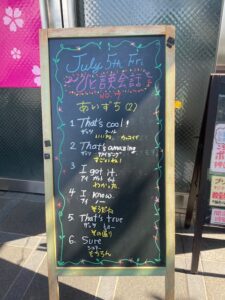 July 5th Fri
英会話
あいずち (2)
1 That's cool!
ザッツ クール
いいね、カッコイイ
2 That's amazing
ザッツ アメイジング
すごいね!
3 I got it.
アイ ガット イット
わかった
4 I know.
アイ ノー
そうだね
5. That's true
ザッツ トゥルー
その通り
6. Sure
シュアー
もちろん